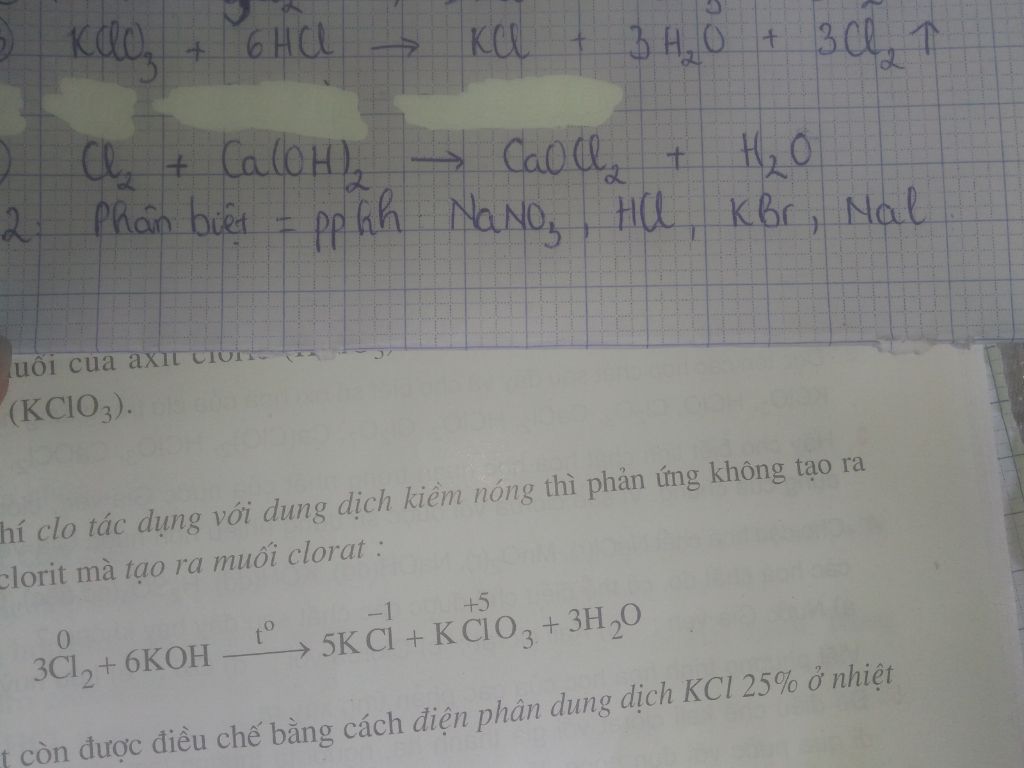 KClO3 + 6HCl → KCl + 3H2O + 3Cl2 ↑
) Cl2 + Ca(OH)2 → CaOCl2 + H2O
2: Phân biệt = pp hh NaNO3, HCl, KBr, NaI
uối của axit
(KClO3).
hí clo tác dụng với dung dịch kiềm nóng thì phản ứng không tạo ra
clorit mà tạo ra muối clorat :
0 −1 +5
3Cl2 + 6KOH t° → 5KCl + KClO3 + 3H2O
t còn được điều chế bằng cách điện phân dung dịch KCl 25% ở nhiệt